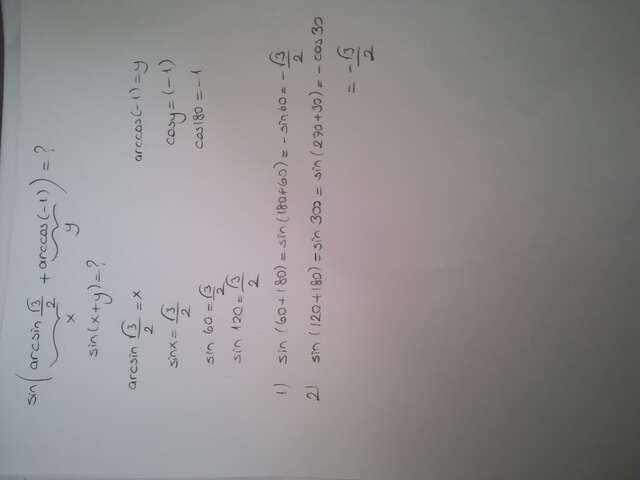 sin(arcsin √3/2 + arccos(-1)) = ?
x y
sin(x+y) = ?
arcsin √3/2 = x
sinx = √3/2
sin 60 = √3/2
sin 120 = √3/2
arccos(-1) = y
cosy = (-1)
cos180 = -1
1) sin(60+180) = sin(180+60) = -sin60 = -√3/2
2) sin(120+180) = sin 300 = sin(270+30) = -cos30
= -√3/2